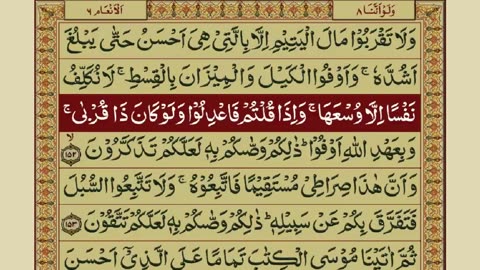 وَلَوْ اَنَّنَا ٨ الْاَنْعَام ٦
وَلَا تَقْرَبُوْا مَالَ الْيَتِيْمِ اِلَّا بِالَّتِيْ هِيَ اَحْسَنُ حَتّٰى يَبْلُغَ
اَشُدَّهٗ ۚ وَاَوْفُوا الْكَيْلَ وَالْمِيْزَانَ بِالْقِسْطِ ۚ لَا نُكَلِّفُ
نَفْسًا اِلَّا وُسْعَهَا ۚ وَاِذَا قُلْتُمْ فَاعْدِلُوْا وَلَوْ كَانَ ذَا قُرْبٰى ۚ
وَبِعَهْدِ اللّٰهِ اَوْفُوْا ؕ ذٰلِكُمْ وَصّٰىكُمْ بِهٖ لَعَلَّكُمْ تَذَكَّرُوْنَ ۙ ﴿۱۵۲﴾
وَاَنَّ هٰذَا صِرَاطِيْ مُسْتَقِيْمًا فَاتَّبِعُوْهُ ۚ وَلَا تَتَّبِعُوا السُّبُلَ
فَتَفَرَّقَ بِكُمْ عَنْ سَبِيْلِهٖ ؕ ذٰلِكُمْ وَصّٰىكُمْ بِهٖ لَعَلَّكُمْ تَتَّقُوْنَ ﴿۱۵۳﴾
ثُمَّ اٰتَيْنَا مُوْسَى الْكِتٰبَ تَمَامًا عَلَى الَّذِيْۤ اَحْسَنَ